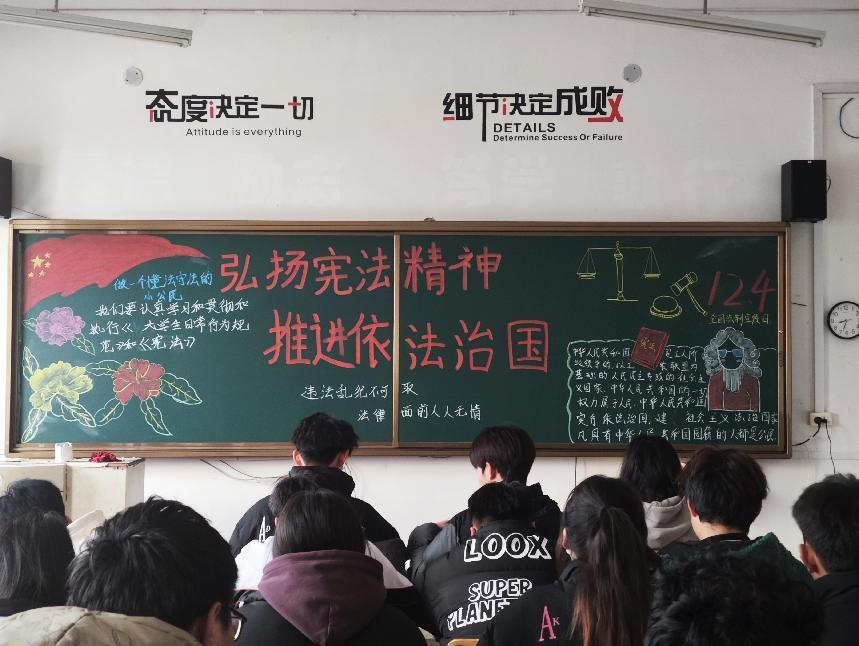 态度决定一切
Attitude is everything
细节决定成败
DETAILS
Determine Success Or Failure
弘扬宪法精神
推进依法治国
做一个懂法守法的
小公民
我们要认真学习和贯彻和
执行《大学生日常行为规
范》和《宪法》
违法乱纪不可取
法律面前人人无情
12.4
全国法制宣传日
宪法
中华人民共和国是工人阶
级领导的，以工农联盟为
基础的人民民主专政的社会主
义国家。中华人民共和国的一切
权力属于人民。中华人民共和国
实行依法治国，建 社会主义法治国家
凡具有中华人民共和国国籍的人都是公民
LOOX
SUPER
PLANET
AK